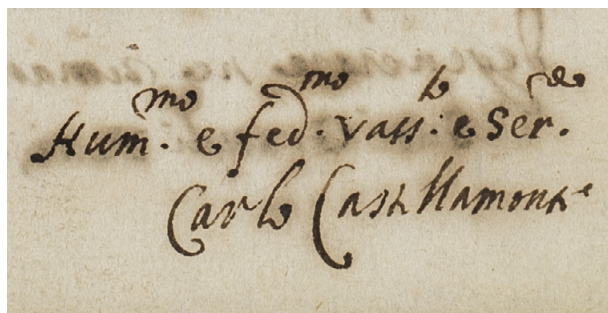 Hum.mo e fed.mo vass.lo e Ser.re
Carlo Castellamonte